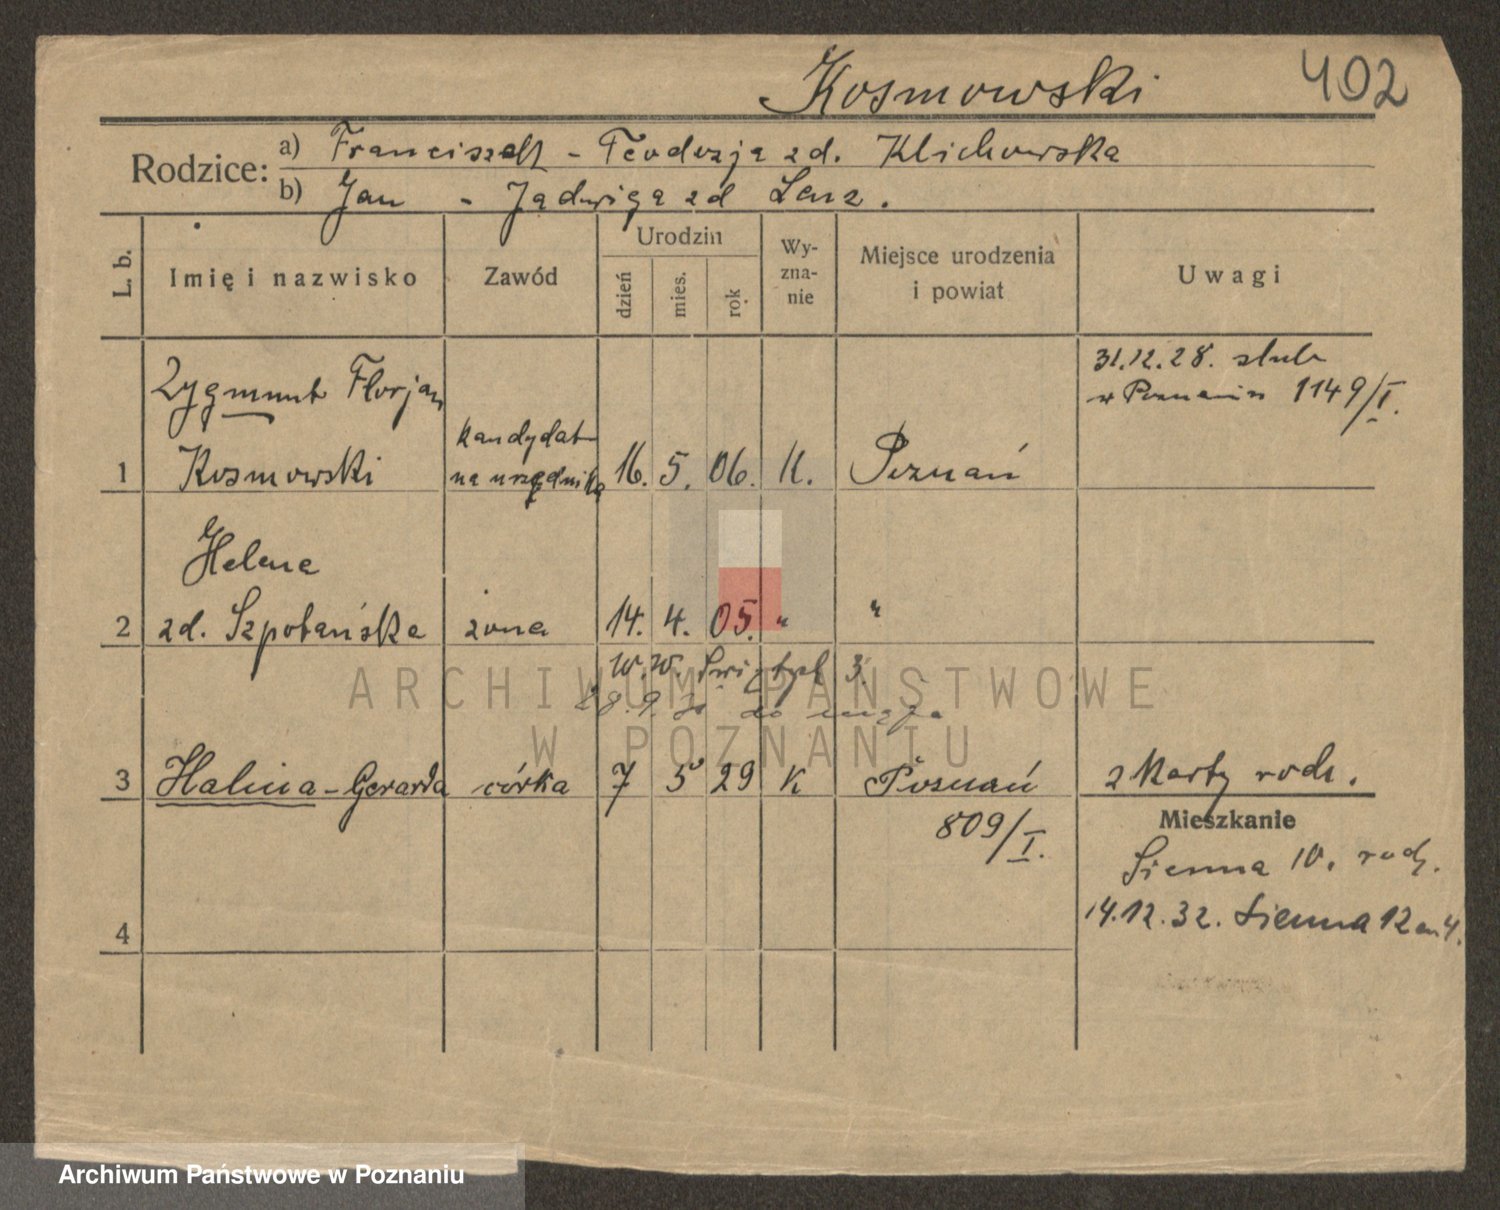 Kosmowski
402
Rodzice: a) Franciszek - Teodozja zd. Klichowska
b) Jan - Jadwiga zd Lenz.
L. b.
Imię i nazwisko
Zawód
Urodzin
dzień
mies.
rok
Wy-
zna-
nie
Miejsce urodzenia
i powiat
Uwagi
31.12.28. ślub
w Poznaniu 1149/I.
Zygmunt Florjan
kandydat
1 Kosmowski na urzędnika 16. 5. 06. K. Poznań
Helena
2 zd. Szpotańska żona 14. 4. 05. " "
W.W. Świętych 3.
28.9. do męża
ARCHIWUM PAŃSTWOWE
W POZNANIU
3 Halina - Gerarda córka 7 5 29 K Poznań z Karty rodz.
809/I.
Mieszkanie
Sienna 10. rodz.
4
14.12.32. Sienna 12 m 4.
Archiwum Państwowe w Poznaniu